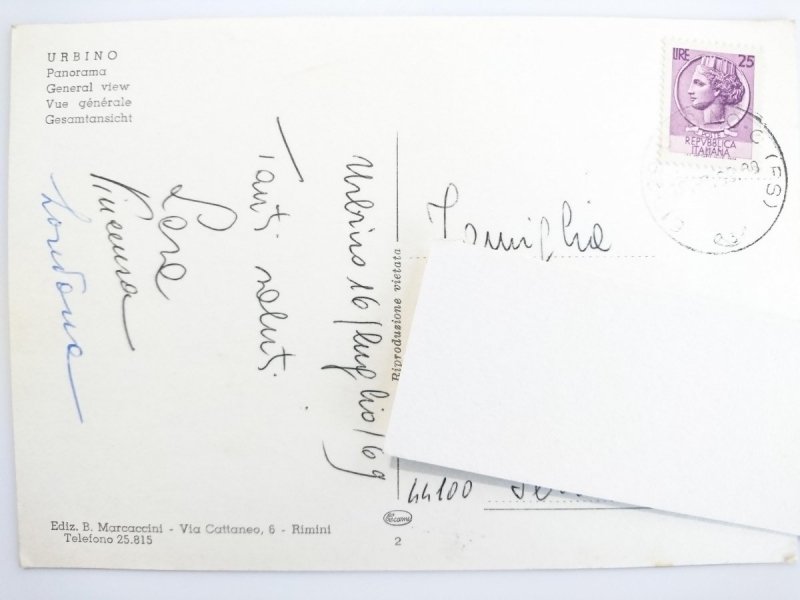 URBINO
Panorama
General view
Vue générale
Gesamtansicht
Urbino 16/luglio/69
Tanti saluti
Lara
Vincenza
Loredana
Riproduzione vietata
LIRE 25
REPVBBLICA
ITALIANA
(PS)
Famiglia
44100
Ediz. B. Marcaccini - Via Cattaneo, 6 - Rimini
Telefono 25.815
2